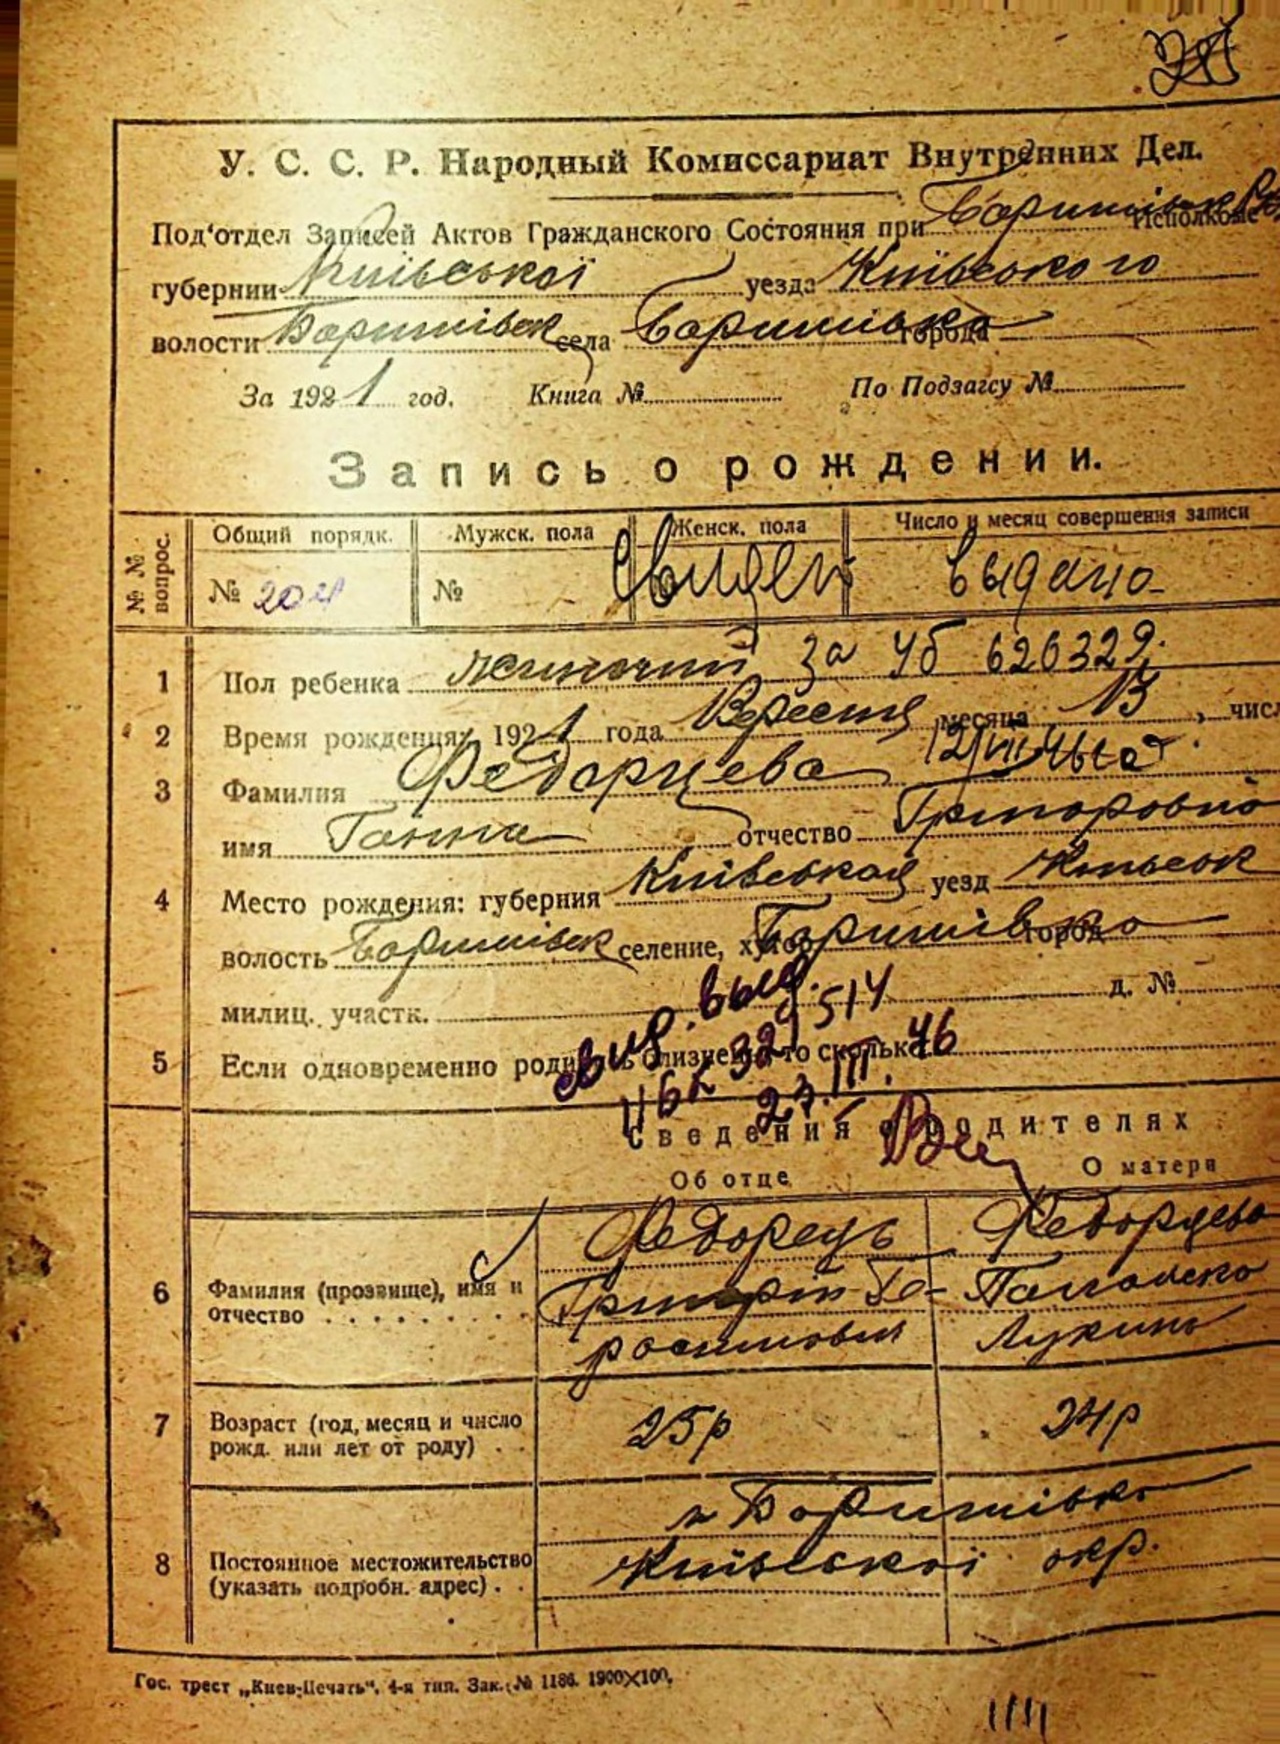 У. С. С. Р. Народный Комиссариат Внутренних Дел.
Под'отдел Записей Актов Гражданского Состояния при Исполкоме
губернии Київської уезда Київського
волости Баришівск села Баришівка города
За 1921 год. Книга № По Подзагсу №
Запись о рождении.
№ № вопрос. Общий порядк. Мужск. пола Женск. пола Число и месяц совершения записи
№ 204 № Свидет выдано
1 Пол ребенка жиночий за УБ 626329.
2 Время рождения: 1921 года Вересня месяца 13, числ
3 Фамилия Федорцева
имя Ганна отчество Григоровна
4 Место рождения: губерния Київськая уезд Київськ
волость Баришівск селение, хутор Баришівка город
милиц. участк. д. №
свид. выд.
514
5 Если одновременно родились близнецы то сколько
329
27.III.46
Сведения о родителях
Об отце О матери
Федорець Федорцева
6 Фамилия (прозвище), имя и
отчество
Лукина
7 Возраст (год, месяц и число
рожд. или лет от роду) . .
25р 24р
м Баришівка
8 Постоянное местожительство
(указать подробн. адрес) . .
Київської окр.
Гос. трест „Киев-Печать“, 4-я тип. Зак. № 1186. 1900×100.